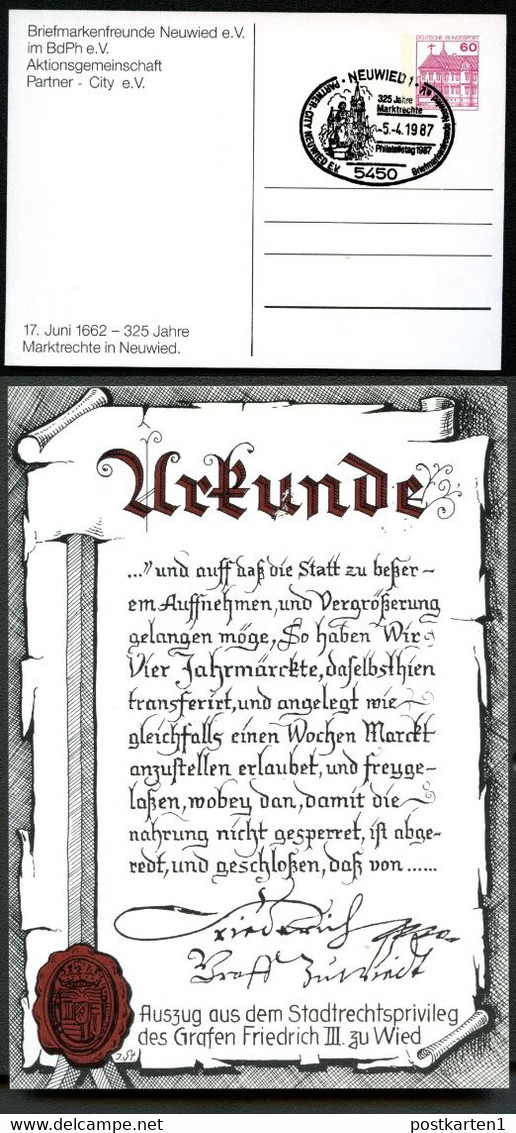 Briefmarkenfreunde Neuwied e.V.
im BdPh e.V.
Aktionsgemeinschaft
Partner - City e.V.
DEUTSCHE BUNDESPOST
60
· NEUWIED 1 ·
PARTNER-CITY NEUWIED E.V.
325 Jahre
Marktrechte
-5.-4.1987
Philatelietag 1987
5450
17. Juni 1662 – 325 Jahre
Marktrechte in Neuwied.
Urkunde
..." und auff daß die Statt zu beßer-
em Auffnehmen, und Vergrößerung
gelangen möge, So haben Wir
Vier Jahrmärckte, daselbsthien
transferirt, und angelegt wie
gleichfalls einen Wochen Marckt
anzustellen erlaubet, und freyge-
laßen, wobey dan, damit die
nahrung nicht gesperret, ist abge-
redt, und geschloßen, daß von ......
Friederich
Graff zu Wiedt
Auszug aus dem Stadtrechtsprivileg
des Grafen Friedrich III. zu Wied
J.St.
postkarten1